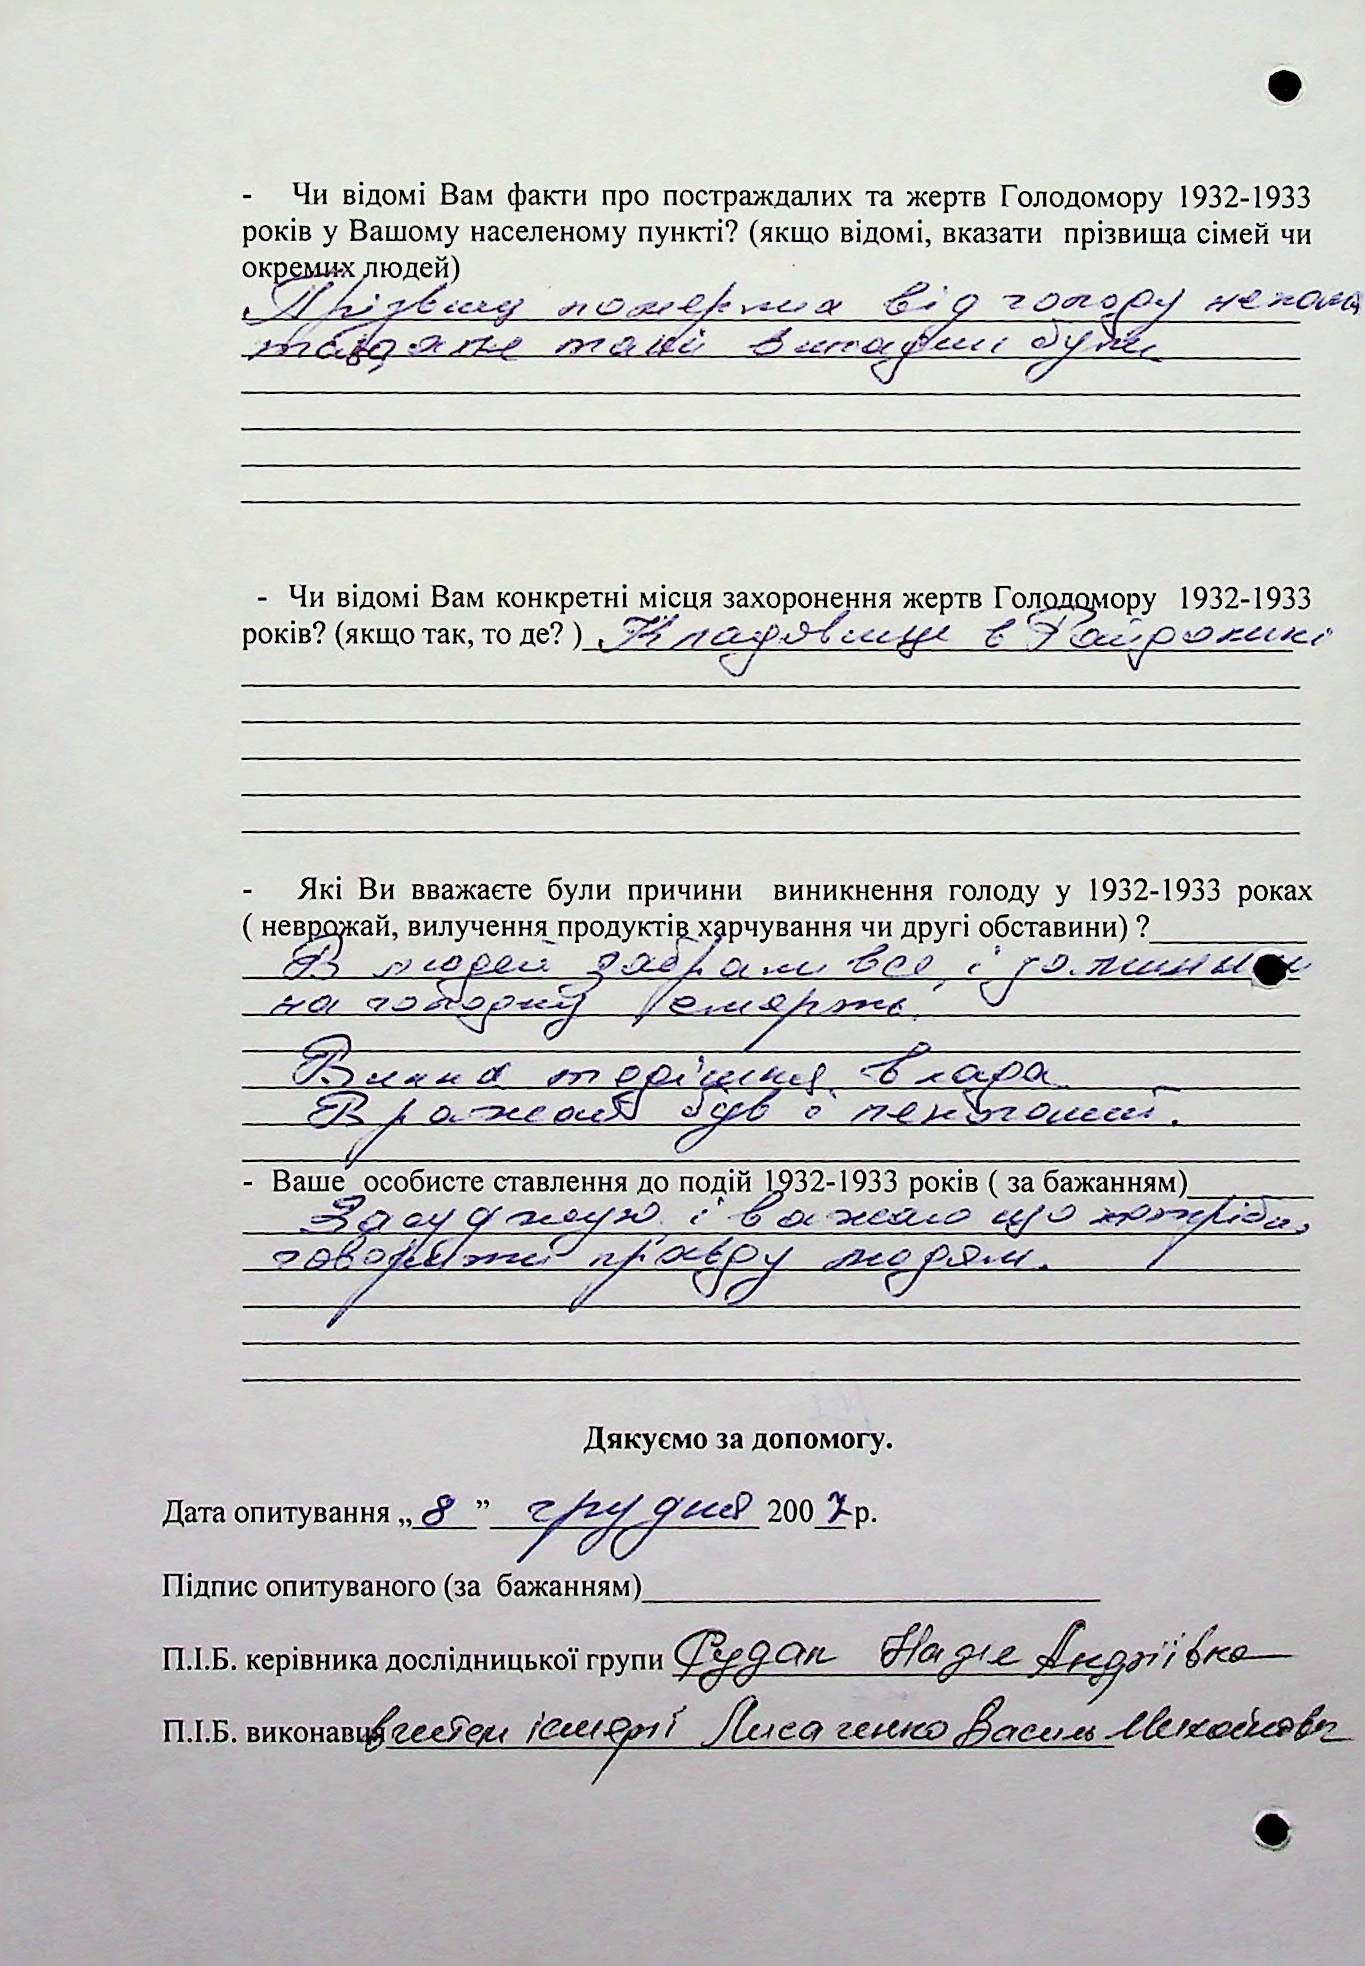 - Чи відомі Вам факти про постраждалих та жертв Голодомору 1932-1933
років у Вашому населеному пункті? (якщо відомі, вказати прізвища сімей чи
окремих людей)
Прізвищ померлих від голоду не
але такі випадки були
- Чи відомі Вам конкретні місця захоронення жертв Голодомору 1932-1933
років? (якщо так, то де? ) Кладовище в
- Які Ви вважаєте були причини виникнення голоду у 1932-1933 роках
( неврожай, вилучення продуктів харчування чи другі обставини) ?
В людей забрали все, і
на голодну смерть.
Винна тодішня влада.
Врожай був і
- Ваше особисте ставлення до подій 1932-1933 років ( за бажанням)
Засуджую і вважаю що потрібно
говорити правду людям.
Дякуємо за допомогу.
Дата опитування „ 8 ” грудня 2007 р.
Підпис опитуваного (за бажанням)
П.І.Б. керівника дослідницької групи Рудан Надія Андріївна
П.І.Б. виконавця вчитель історії Лисаченко Василь Михайлович